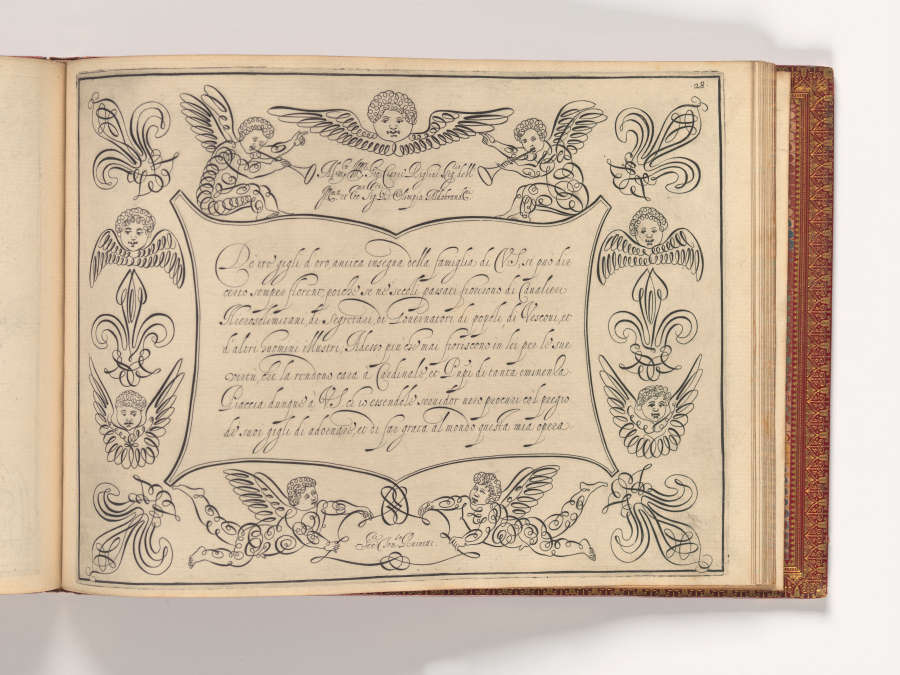 28.
All'Ill.mo Sig. Sig.
Ill.mo et Ecc.mo Sig.ra D. Olimpia Aldobrand.
De tre gigli d'oro, antica insegna della famiglia di V.S. si puo dir
certo sempre fiorent, poiche se ne secoli passati fioriscono di Cavalieri
Hierosolimitani, di Segretari, di Governatori di popoli, di Vescovi, et
d'altri huomini illustri, Adesso piu che mai fioriscono in lei per le sue
virtu, che la rendono cara a Cardinale, et Papi di tanta eminenza
Piaccia dunque à V.S. ch' io essendole servidor novo procuri co'l pregio
de' suoi gigli di adornare, et di far grata al mondo questa mia opera